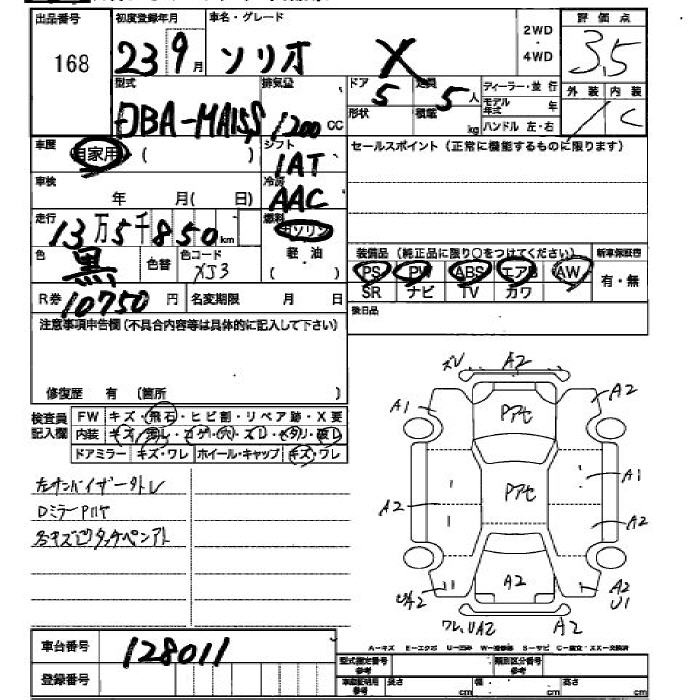 出品番号
168
初度登録年月
23 9月
車名・グレード
ソリオ X
2WD
・
4WD
評価点
3.5
型式
DBA-MA15S
排気量
1200 cc
ドア
5
形状
定員
5人
積載
kg
ディーラー・並行
モデル年式 年
ハンドル 左・右
外装
内装
C
車歴
自家用 ( )
シフト
IAT
セールスポイント(正常に機能するものに限ります)
車検
年 月( 日)
冷房
AAC
走行
13万5千850km
燃料
ガソリン
軽油
色
黒
色替
色コード
XJ3
装備品(純正品に限り○をつけてください)
新車保証書
PS PW ABS エアB AW
SR ナビ TV カワ
有・無
R券
10750円
名変期限 月 日
後日品
注意事項申告欄(不具合内容等は具体的に記入して下さい)
修復歴 有 (箇所 )
検査員
記入欄
FW キズ・飛石・ヒビ割・リペア跡・X要
内装 キズ・汚レ・コゲ・穴・スレ・ヘタリ・破レ
ドアミラー キズ・ワレ ホイール・キャップ キズ・ワレ
左サンバイザータレ
DミラーPハゲ
各キズピタッチペンアト
ズレ A2
A1
Pアセ
A2
A2
Pアセ
A1
A2
A2
A2
U1
A2
A-キズ E-エクボ U-凹み W-補修跡 S-サビ C-腐食 XX-交換済
車台番号
128011
登録番号
型式指定番号
参考
類別区分番号
参考
車庫証明用
参考
長さ cm
幅 cm
高さ cm